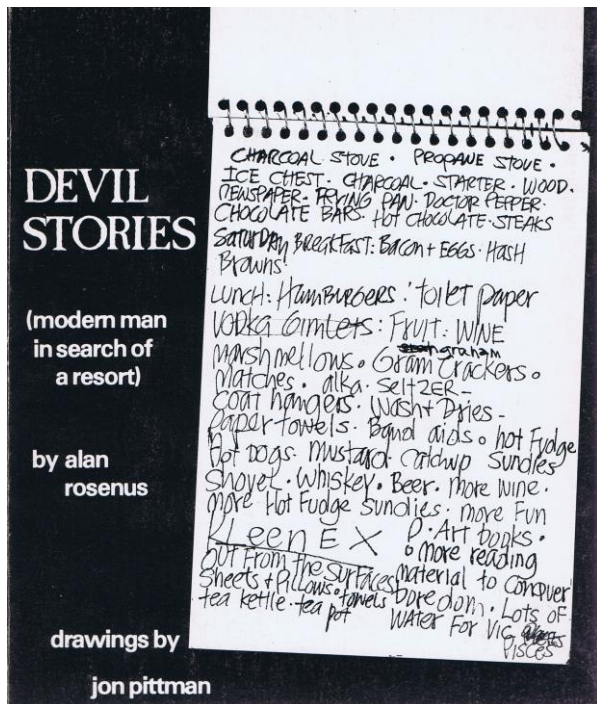 DEVIL
STORIES
(modern man
in search of
a resort)
by alan
rosenus
drawings by
jon pittman
CHARCOAL STOVE • PROPANE STOVE •
ICE CHEST • CHARCOAL • STARTER • WOOD •
NEWSPAPER • FRYING PAN • DOCTOR PEPPER •
CHOCOLATE BARS • HOT CHOCOLATE • STEAKS
SATURDAY BREAKFAST: BACON + EGGS • HASH
BROWNS •
LUNCH: HAMBURGERS : toilet paper
VODKA Gimlets : FRUIT : WINE
graham
marshmellows • Gram Crackers •
matches • alka • SELTZER –
coat hangers • Wash + Dries –
paper towels • Band aids • hot Fudge
Hot Dogs • mustard • Catchup Sundies
Shovel • Whiskey • Beer • more wine •
more Hot Fudge Sundies • more Fun
KleenEX P • Art books •
• more reading
OUT From the SurFaces material to Conquer
Sheets + Pillows • towels boredom • Lots of
tea kettle • tea pot WATER For VIC
PISCES